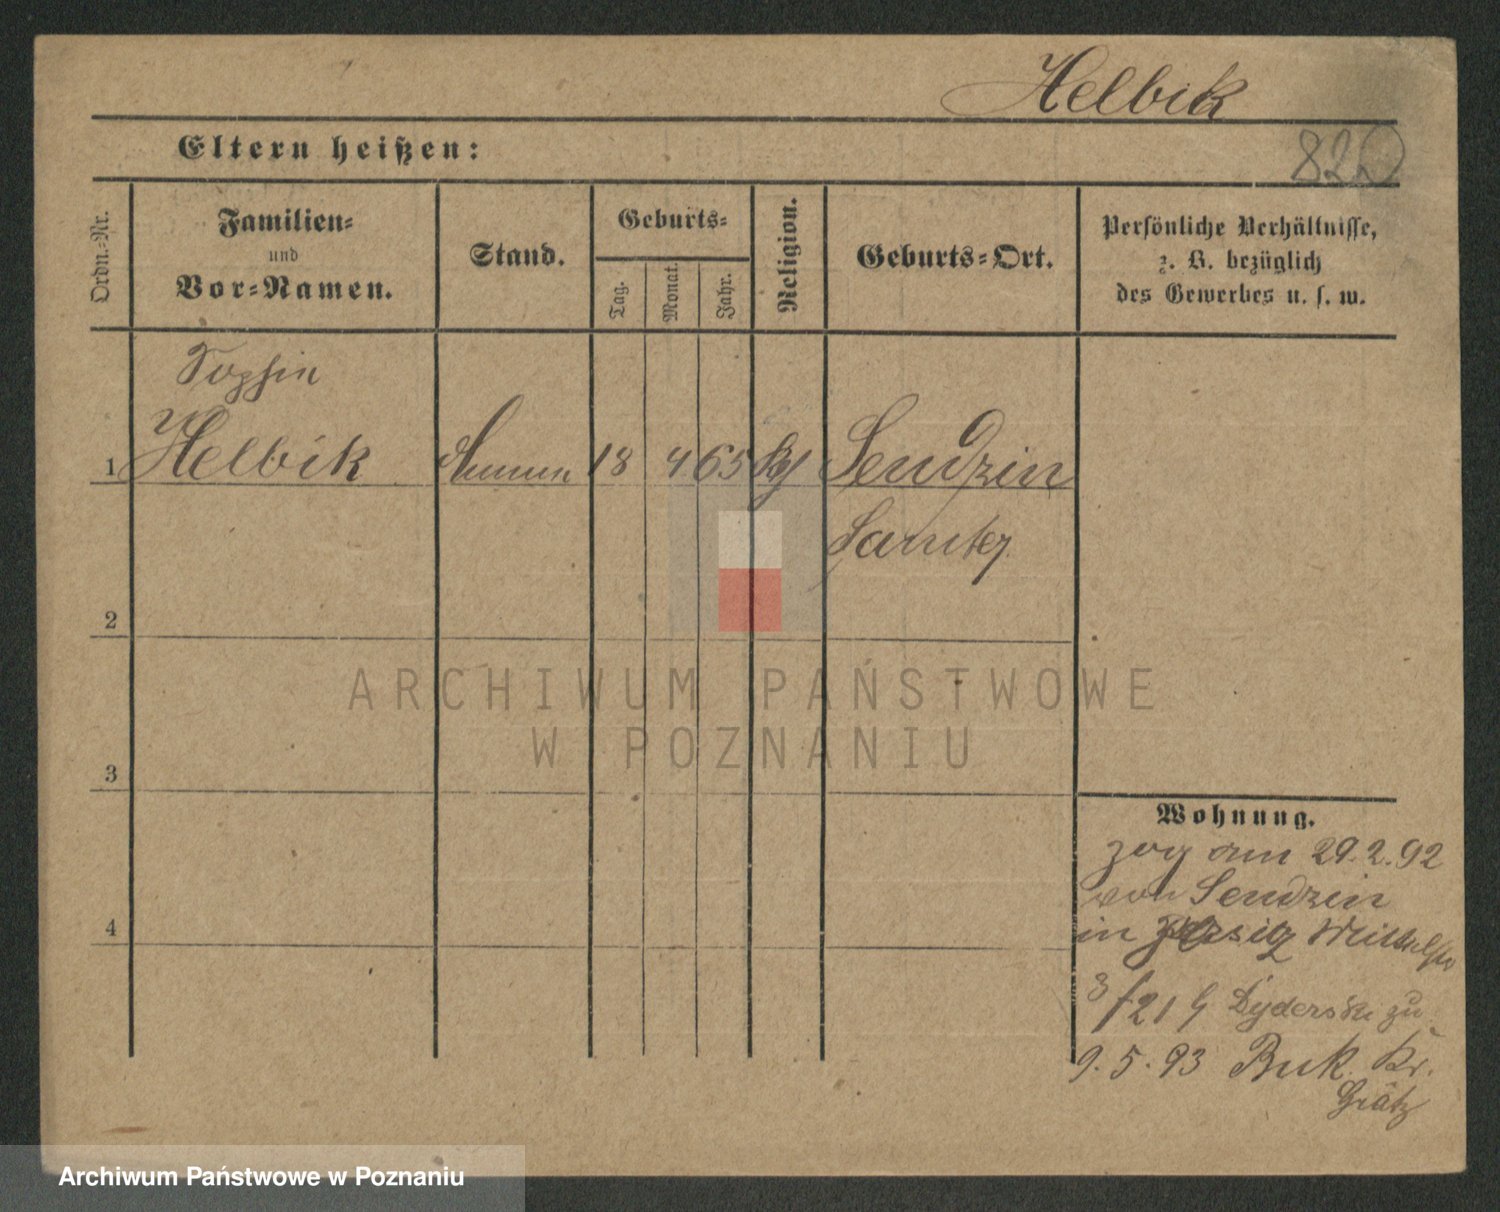 Helbik
82
Eltern heißen:
Ordn.-Nr.
Familien-
und
Vor-Namen.
Stand.
Geburts-
Tag.
Monat.
Jahr.
Religion.
Geburts-Ort.
Persönliche Verhältnisse,
z. B. bezüglich
des Gewerbes u. s. w.
Sophie
1 Helbik Amme 18 4 65 Sendzin
Samter
2
3
4
ARCHIWUM PAŃSTWOWE
W POZNANIU
Wohnung.
zog am 29.2.92
von Sendzin
in Jersitz
3/21 Dyderski zu
9.5.93 Buk Kr.
Grätz
Archiwum Państwowe w Poznaniu